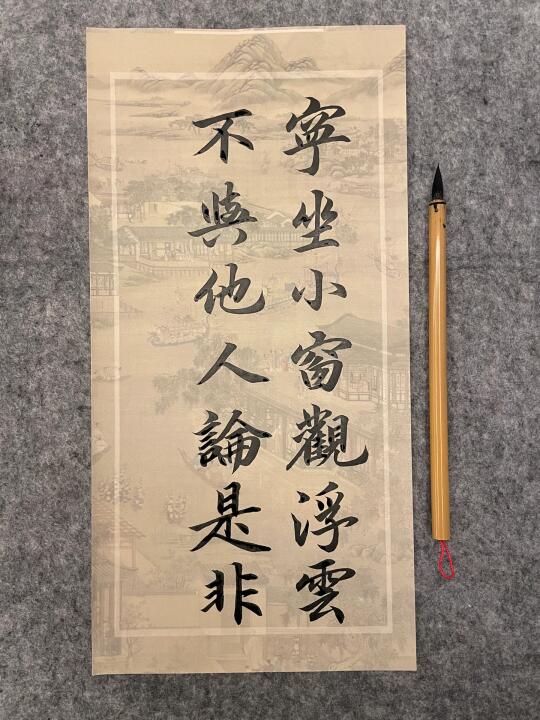 寜坐小窗觀浮雲
不與他人論是非